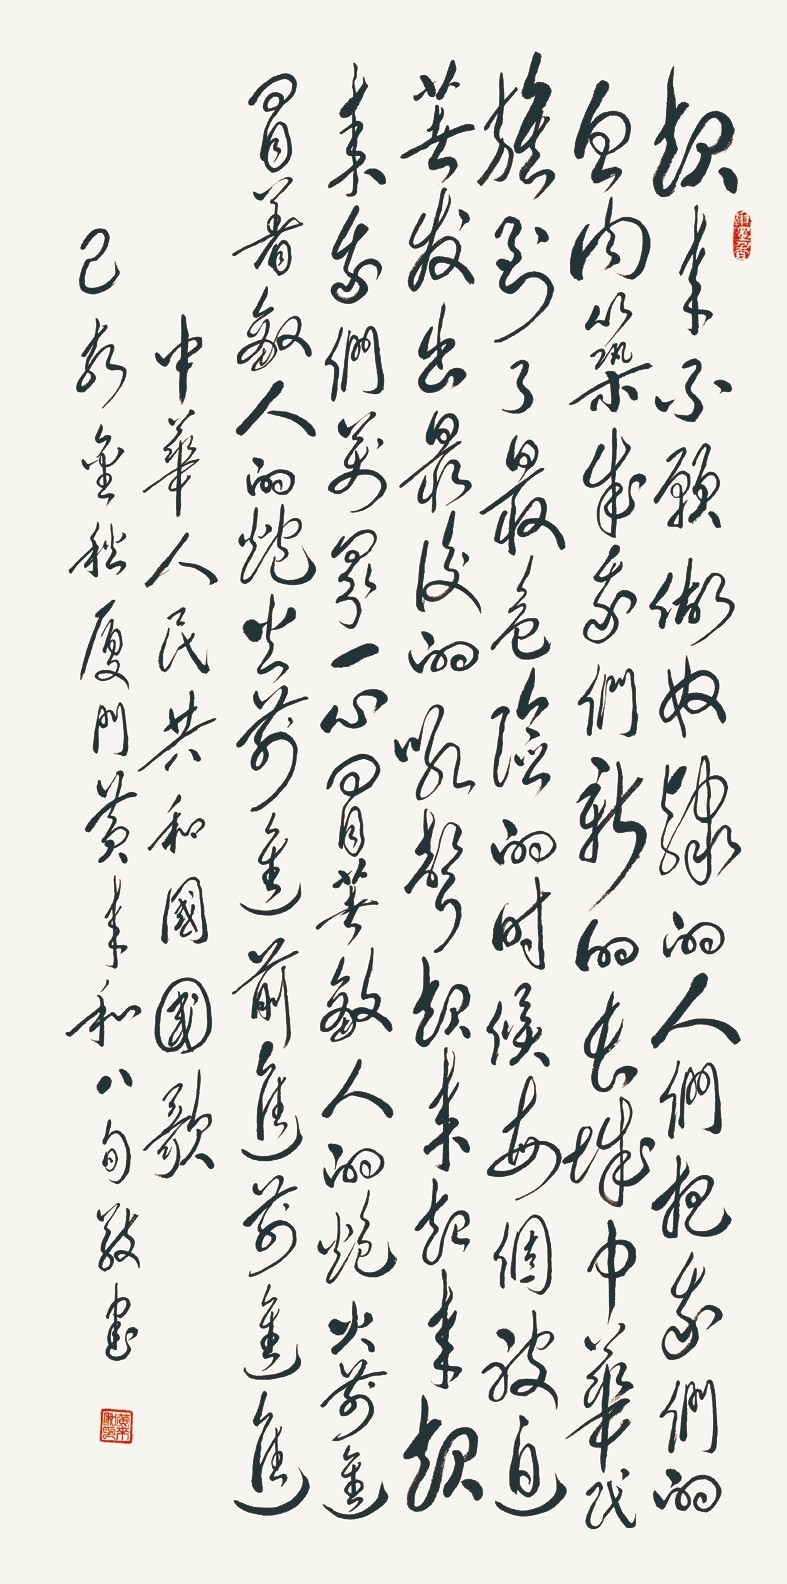 起来不願做奴隸的人們把我們的
血肉築成我們新的长城中華民
族到了最危險的时候每個被迫
着发出最後的吼聲起来起来起
来我們萬眾一心冒着敵人的炮火前進
冒着敵人的炮火前進前進前進進
中華人民共和國國歌
己亥金秋厦門黄来和八旬敬書